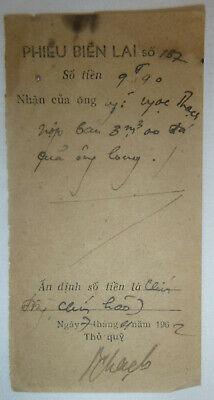 PHIẾU BIÊN LAI số 152
Số tiền 9đ90
Nhận của ông Ngọc Thạch
nộp 3m³00 đá
quả ông Long ./
Ấn định số tiền là Chín
đồng chín hào
Ngày 7 tháng năm 1962
Thủ quỹ